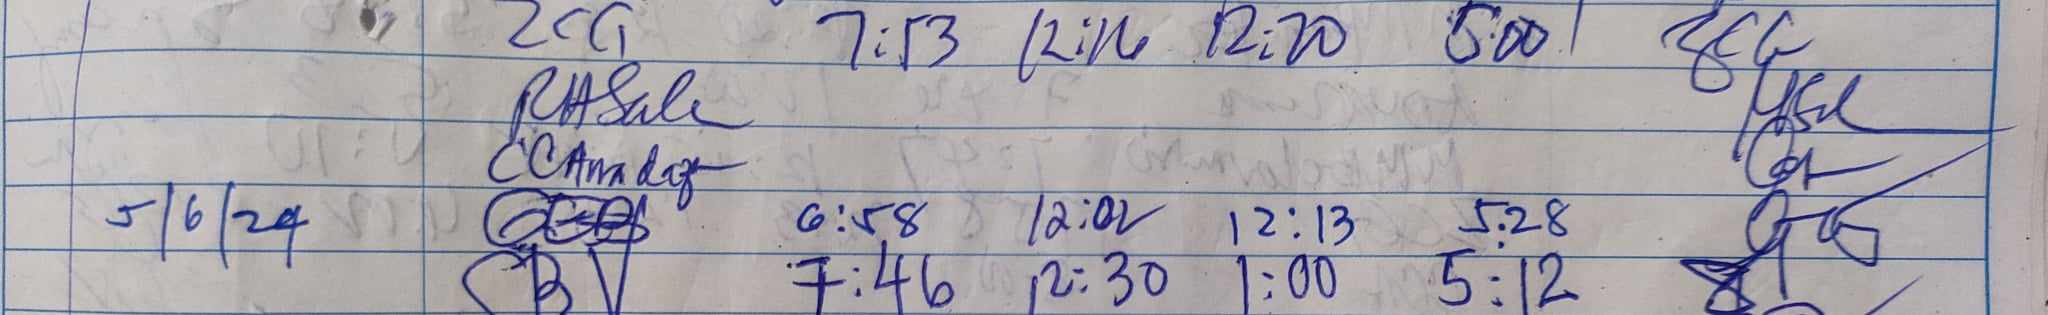 ZCG 7:53 12:16 12:20 5:00 ZCG
RHSale
CCAmadar
5/6/24 6:58 12:02 12:13 5:28
CBV 7:46 12:30 1:00 5:12